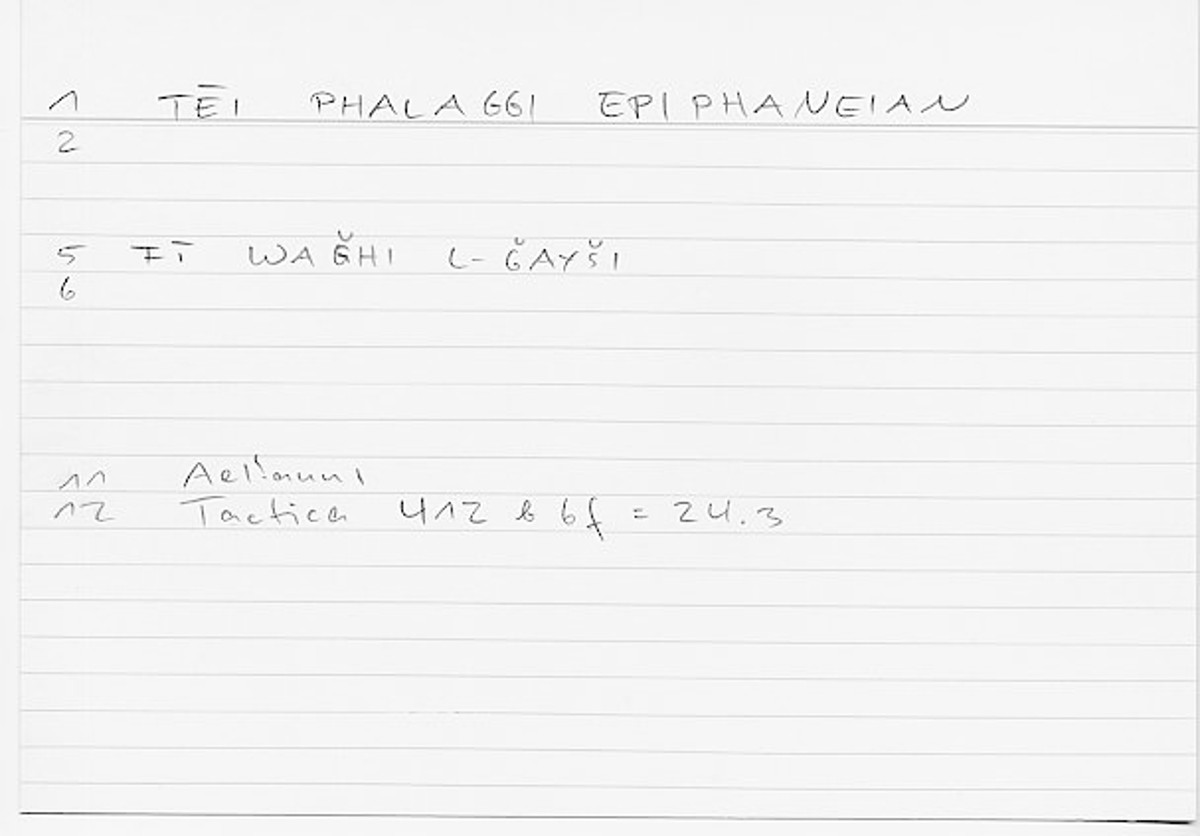 1 TĒI PHALAGGI EPIPHANEIAN
2
5 FĪ WAǦHI L-ǦAYŠI
6
11 Aeliani
12 Tactica 412 b 6f = 24.3